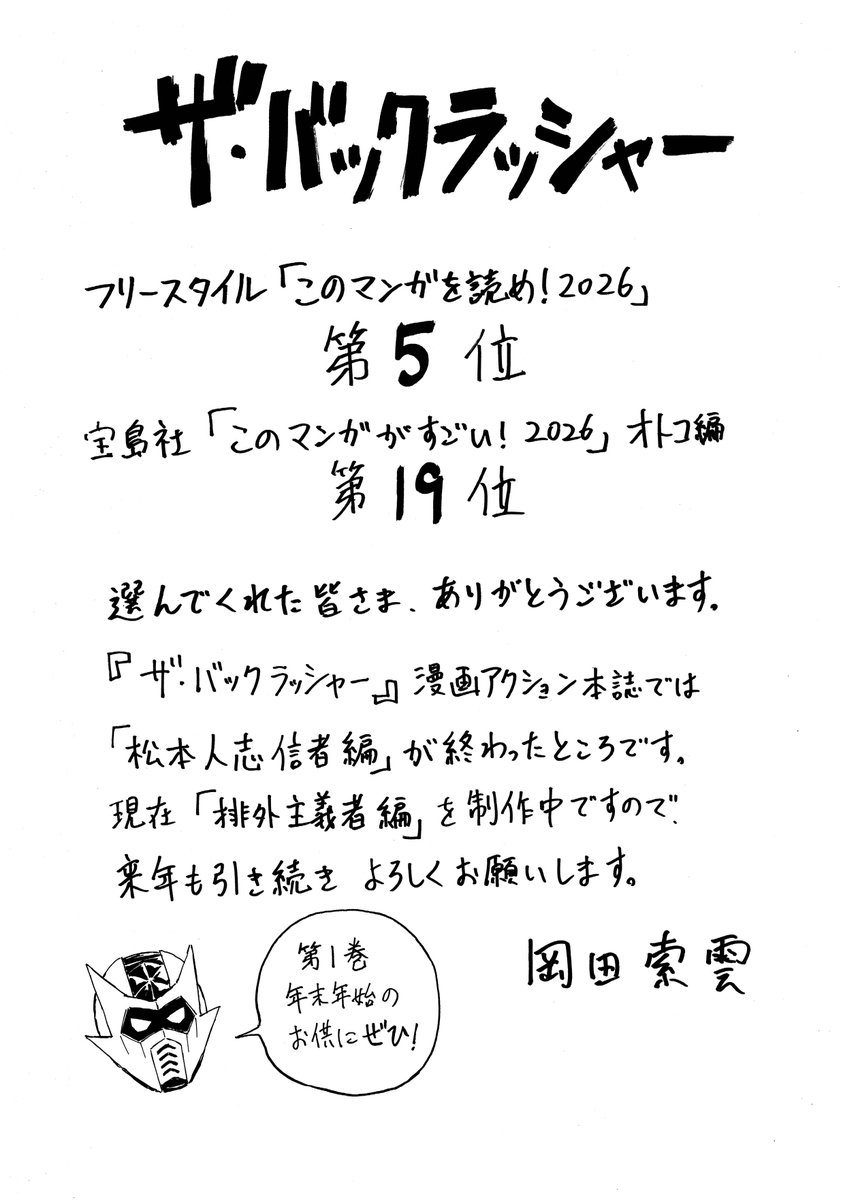 ザ・バックラッシャー
フリースタイル「このマンガを読め!2026」
第5位
宝島社「このマンガがすごい!2026」オトコ編
第19位
選んでくれた皆さま、ありがとうございます。
『ザ・バックラッシャー』漫画アクション本誌では
「松本人志信者編」が終わったところです。
現在「排外主義者編」を制作中ですので、
来年も引き続きよろしくお願いします。
岡田索雲
第1巻
年末年始の
お供にぜひ!